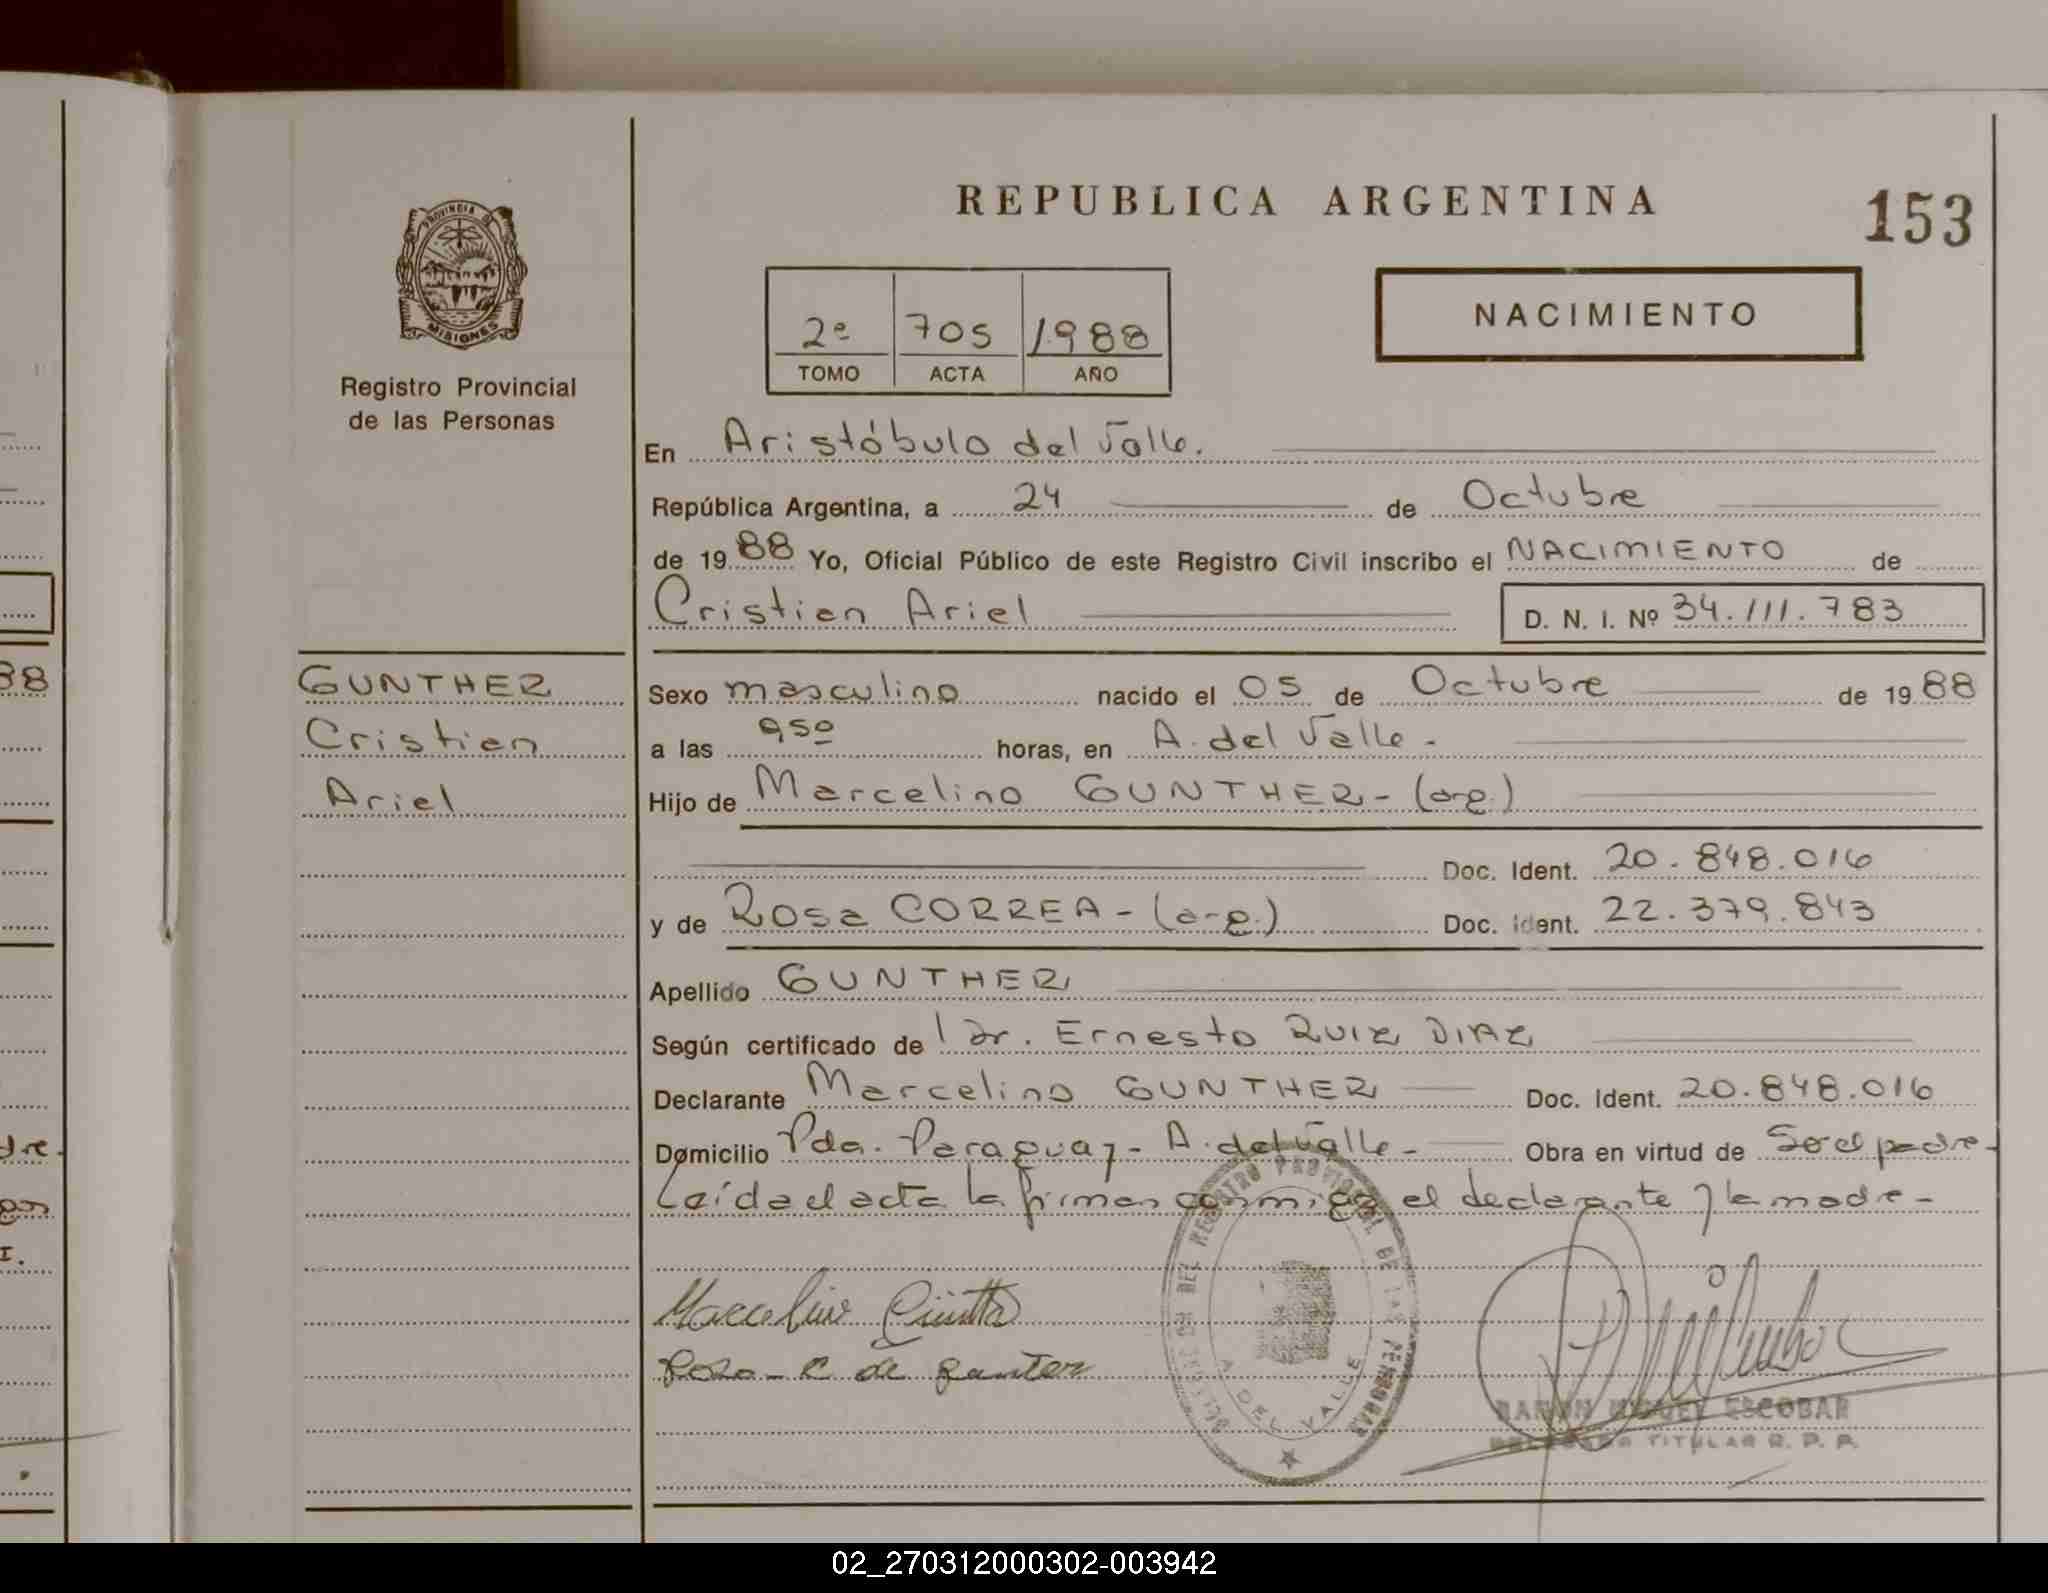 REPUBLICA ARGENTINA
153
PROVINCIA DE MISIONES
Registro Provincial
de las Personas
2º 705 1988
TOMO ACTA AÑO
NACIMIENTO
En Aristóbulo del Valle.
República Argentina, a 24 de Octubre
de 1988 Yo, Oficial Público de este Registro Civil inscribo el NACIMIENTO de
Cristian Ariel D. N. I. Nº 34.111.783
GUNTHER
Cristian
Ariel
Sexo masculino nacido el 05 de Octubre de 1988
a las 950 horas, en A. del Valle.
Hijo de Marcelino GUNTHER - (arg.)
Doc. Ident. 20.848.016
y de Rosa CORREA - (arg.) Doc. Ident. 22.379.843
Apellido GUNTHER
Según certificado de Dr. Ernesto RUIZ DIAZ
Declarante Marcelino GUNTHER Doc. Ident. 20.848.016
Domicilio Pda. Paraguay - A. del Valle - Obra en virtud de Ser el padre -
Leída el acta la firman conmigo el declarante y la madre -
Marcelino
Rosa - C de ganter
DEL REGISTRO PROVINCIAL DE LAS PERSONAS
A DEL VALLE
RAMON MIGUEL ESCOBAR
DELEGADO TITULAR R. P. P.
88
dre.
I.
02_270312000302-003942